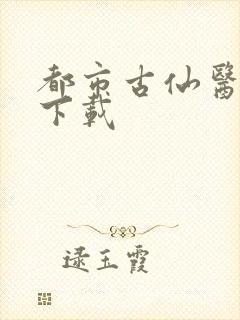 都市古仙醫
下載
逯玉霞